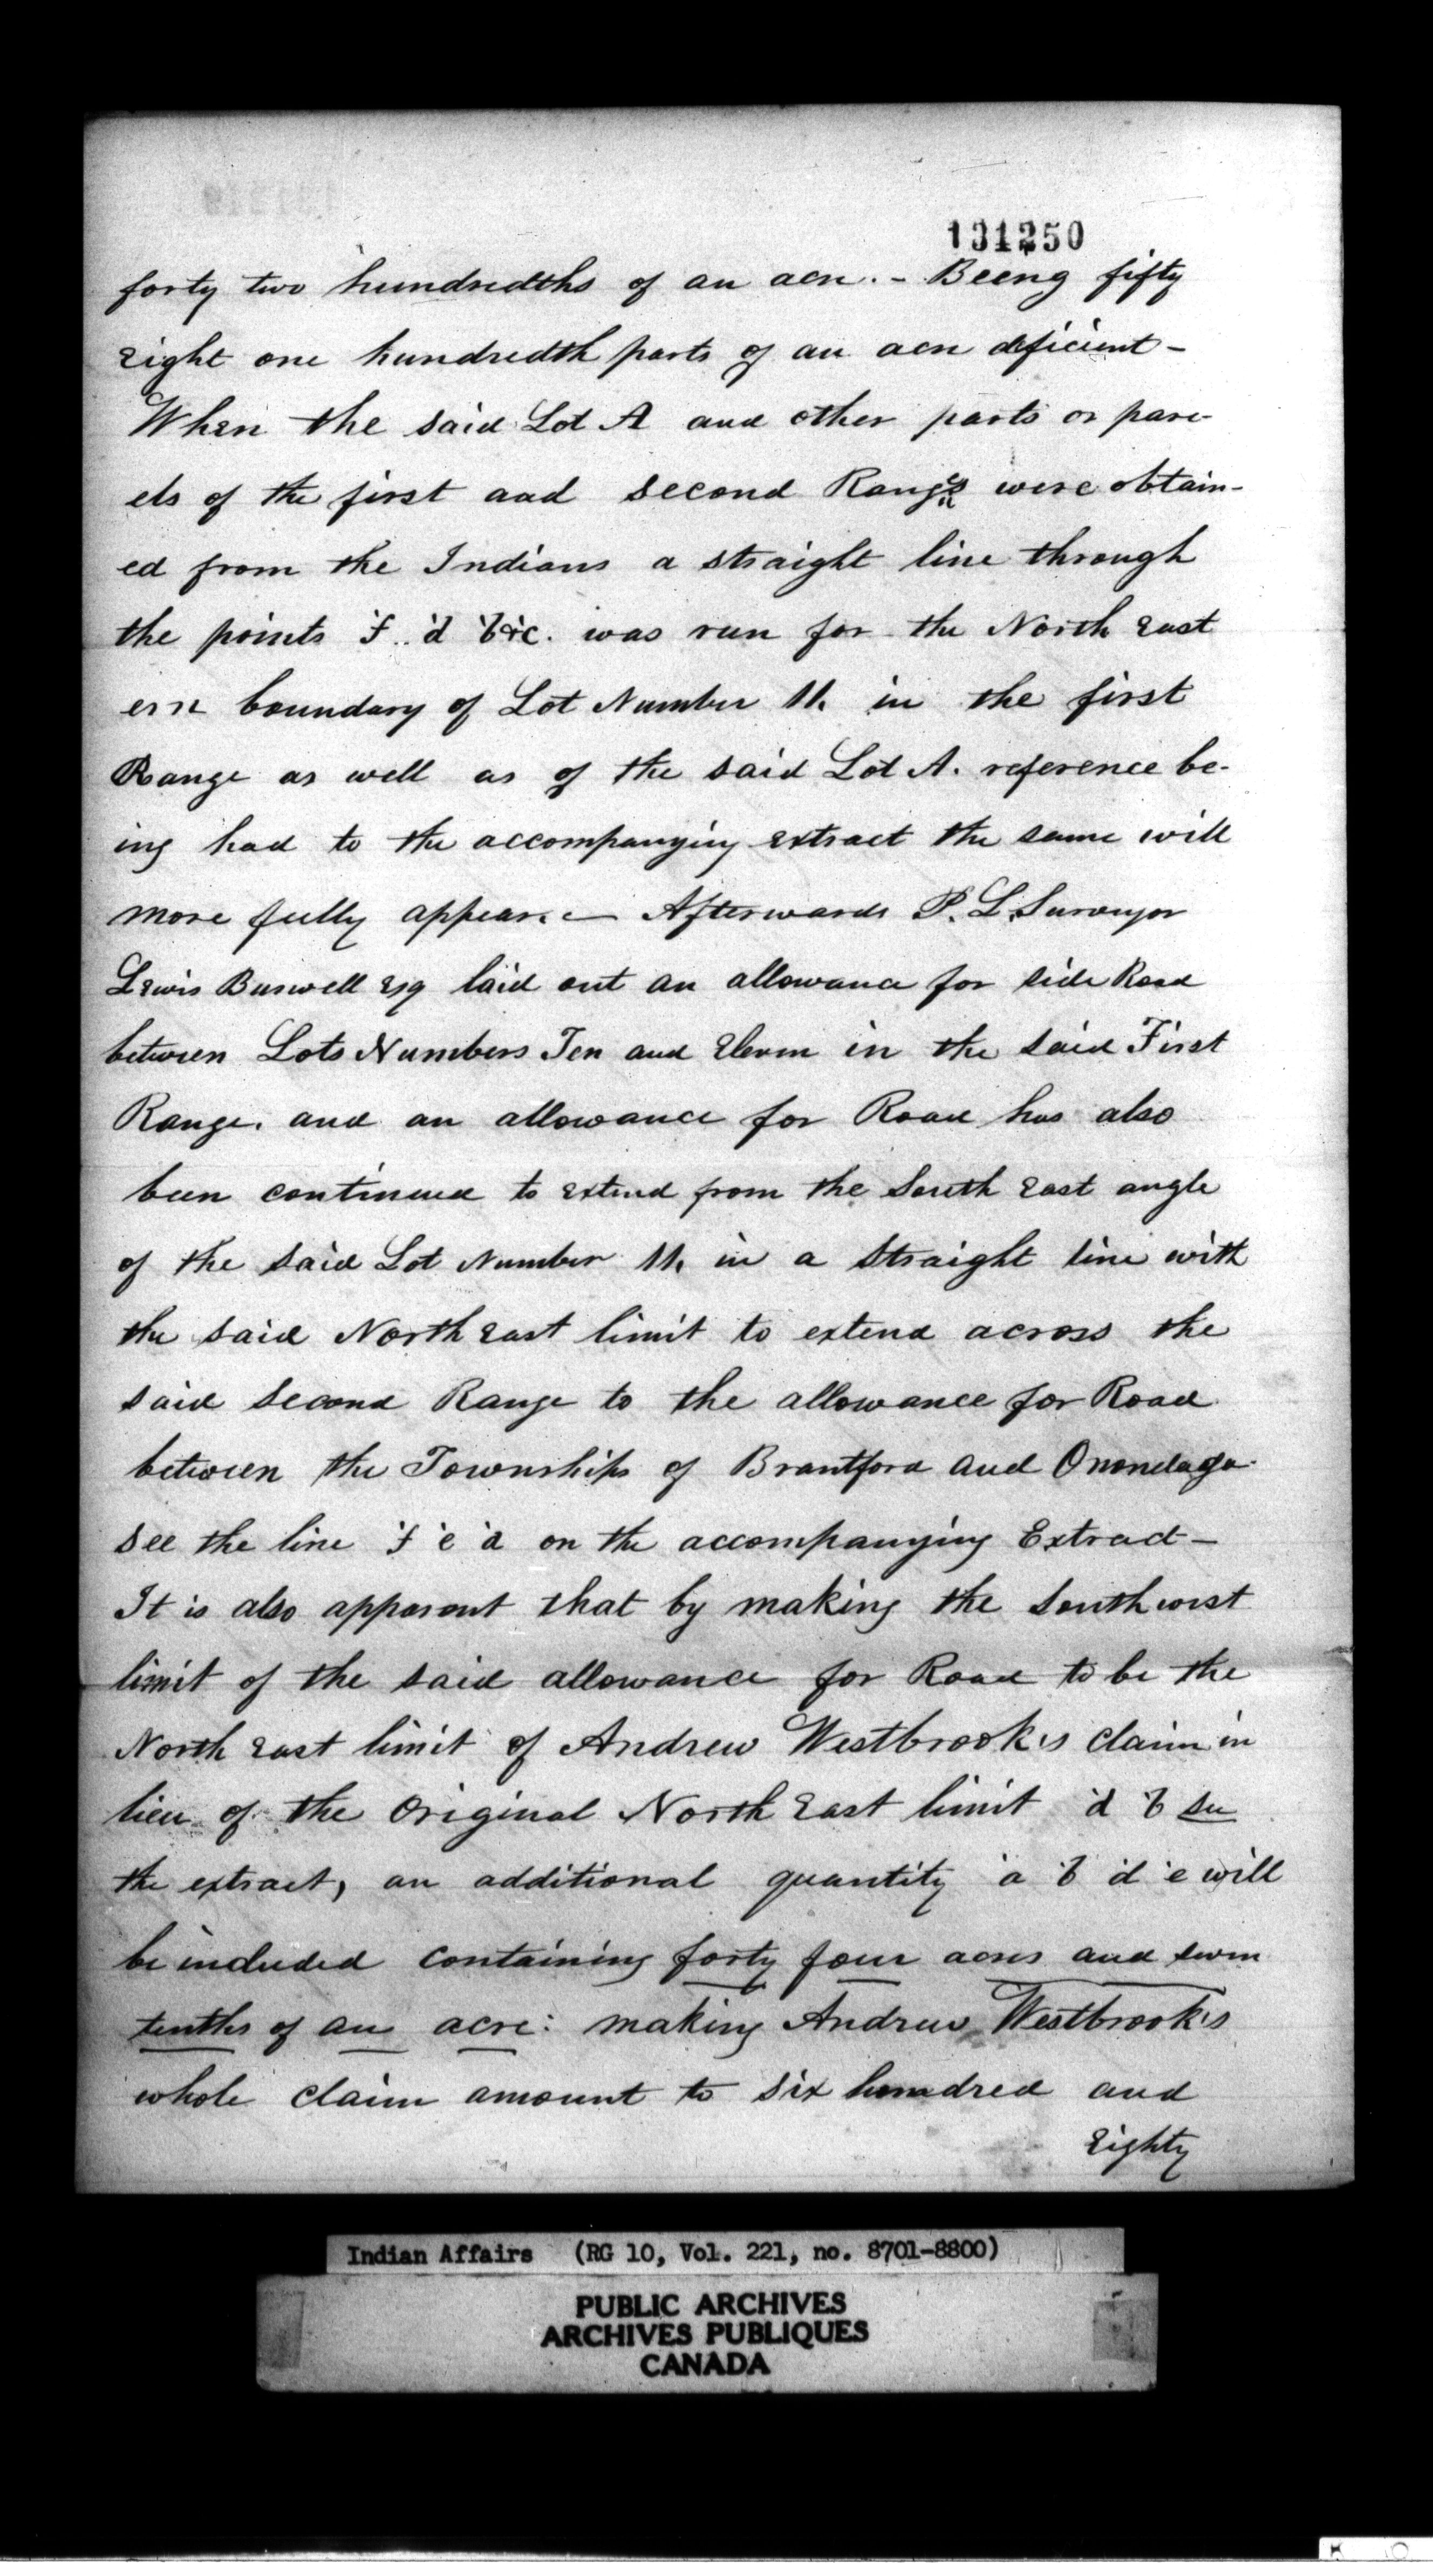 131250
forty two hundredths of an acre. - Being fifty
eight one hundredth parts of an acre deficient -
When the said Lot A and other parts or parc-
els of the first and second Ranges were obtain-
ed from the Indians a straight line through
the points 'f 'd 'b &c. was run for the North East
ern boundary of Lot Number 11. in the first
Range as well as of the said Lot A. reference be-
ing had to the accompanying extract the same will
more fully appear. - Afterwards P. L. Surveyor
Lewis Burwell Esq laid out an allowance for side Road
between Lots Numbers Ten and Eleven in the said First
Range. and an allowance for Road has also
been continued to extend from the South East angle
of the said Lot Number 11. in a straight line with
the said North East limit to extend across the
said Second Range to the allowance for Road
between the Townships of Brantford and Onondaga.
see the line 'f 'e 'a on the accompanying Extract -
It is also apparent that by making the South west
limit of the said allowance for Road to be the
North East limit of Andrew Westbrook's claim in
lieu of the Original North East limit 'd 'b see
the extract, an additional quantity 'a 'b 'd 'e will
be included containing forty four acres and seven
tenths of an acre: making Andrew Westbrook's
whole claim amount to six hundred and
Eighty
Indian Affairs (RG 10, Vol. 221, no. 8701-8800)
PUBLIC ARCHIVES
ARCHIVES PUBLIQUES
CANADA